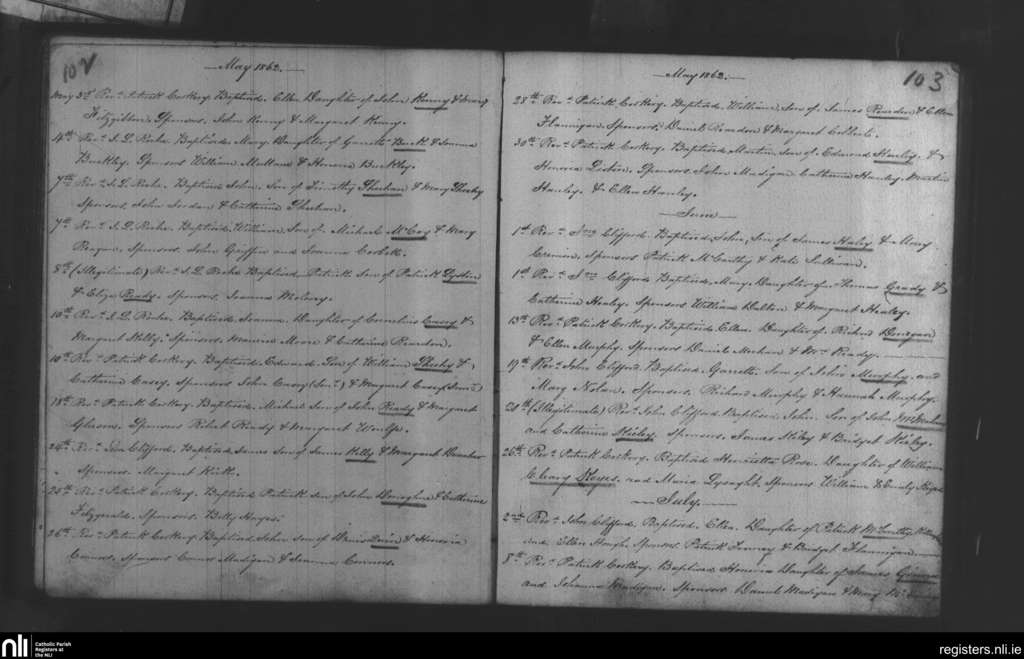 102
May 1862.
May 3d Revd. Patrick Corkery. Baptised. Ellen Daughter of John Kenny & Mary
Fitzgibbon. Sponsors. John Kenny & Margaret Kenny.
4th Revd. S. L. Roche. Baptised. Mary. Daughter of Garrett Buck & Joanna
Buckley. Sponsors William & Honora Buckley.
7th Revd. S. L. Roche. Baptised John. Son of Timothy Sheehan & Mary Sheehy
Sponsors. John Jordan & Catherine Sheehan.
7th Revd. S. L. Roche. Baptised. William. Son of. Michael McCoy & Mary
Reagan. Sponsors. John Griffin and Joanna Corbett.
8th (Illegitimate) Revd. S. L. Roche Baptised Patrick Son of Patrick Lyddin
& Eliza Ready. Sponsors. Joanna
10th Revd. S. L. Roche. Baptised. Joanna. Daughter of Cornelius Casey &
Margaret Kelly. Sponsors. Maurice Moore & Catherine Reardon.
10th Revd. Patrick Corkery. Baptised Edward. Son of William Sheehy &
Catherine Casey. Sponsors John Casey (Senr.) & Margaret Casey (Junr.)
18th Revd. Patrick Corkery. Baptised. Michael Son of John Ready & Margaret
Gleeson. Sponsors Robert Ready & Margaret Woulfe.
24th Revd. John Clifford. Baptised James Son of James Kelly & Margaret
Sponsors. Margaret Kirk.
25th Revd. Patrick Corkery. Baptised Patrick Son of John Donoghue & Catherine
Fitzgerald. Sponsors. Betty Hayes.
26th Revd. Patrick Corkery. Baptised John Son of Denis & Honoria
Connors. Sponsors Connor Madigan & Joanna Connors.
May 1862.
103
28th Revd. Patrick Corkery. Baptised. William. Son of James Reardon & Ellen
Flannigan. Sponsors. Daniel Reardon & Margaret
30th Revd. Patrick Corkery. Baptised Martin. Son of Edmond Hanley. &
Honoria Liston. Sponsors John Madigan Catherine Hanley. Martin
Hanley. & Ellen Hanley.
June
1st Revd. Jno. Clifford. Baptised, John, Son of James Haley & Mary
Cremin. Sponsors Patrick McCarthy & Kate Sullivan.
1st Revd. Jno. Clifford Baptised. Mary. Daughter of Thomas Grady &
Catherine Healey. Sponsors William Dalton & Margaret Healey.
13th Revd. Patrick Corkery. Baptised. Ellen. Daughter of Richard Donegan
& Ellen Murphy. Sponsors Daniel Meehan & Mrs. Ready.
19th Revd. John Clifford. Baptised. Garrett. Son of John Murphy. and
Mary Nolan. Sponsors. Richard Murphy & Hannah Murphy.
20th (Illegitimate) Revd. John Clifford. Baptised John. Son of John
and Catherine Hickey. Sponsors. James Hickey & Bridget Hickey.
26th Revd. Patrick Corkery. Baptised Henrietta Rose. Daughter of William
Cleary Hayes. and Maria Lysaght. Sponsors William & Emily Hayes
July.
2nd Revd. John Clifford. Baptised. Ellen. Daughter of Patrick McCarthy
and Ellen Hough. Sponsors. Patrick & Bridget Flannigan.
8th Revd. Patrick Corkery. Baptised Honoria Daughter of James
and Johanna Madigan. Sponsors. Daniel Madigan & Mary
nli
Catholic Parish
Registers at
the NLI
registers.nli.ie